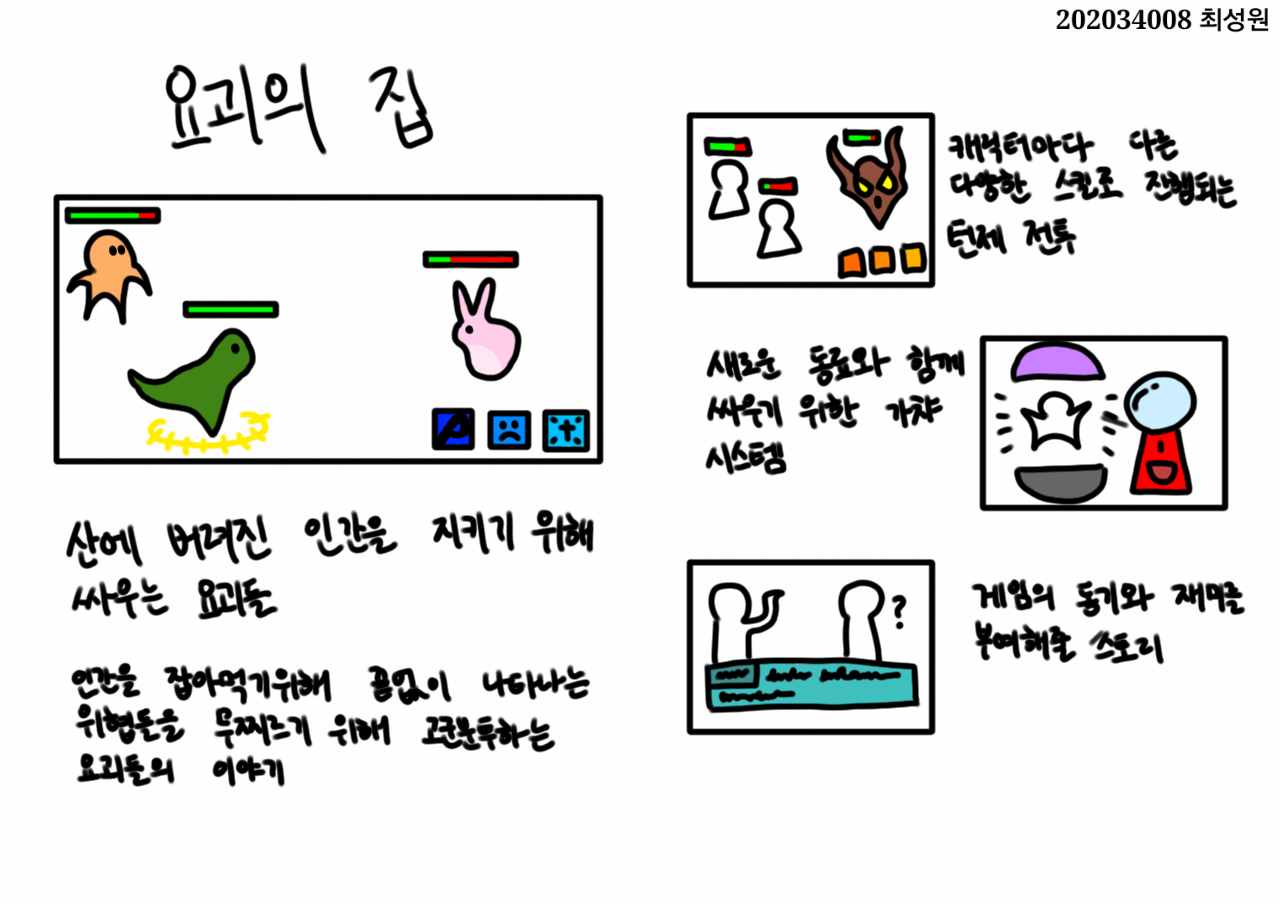 202034008 최성원
요괴의 집
산에 버려진 인간을 지키기 위해
싸우는 요괴들
인간을 잡아먹기위해 끝없이 나타나는
위협들을 무찌르기 위해 고군분투하는
요괴들의 이야기
캐릭터마다 다른
다양한 스킬로 진행되는
턴제 전투
새로운 동료와 함께
싸우기 위한 가챠
시스템
?
게임의 동기와 재미를
부여해줄 스토리